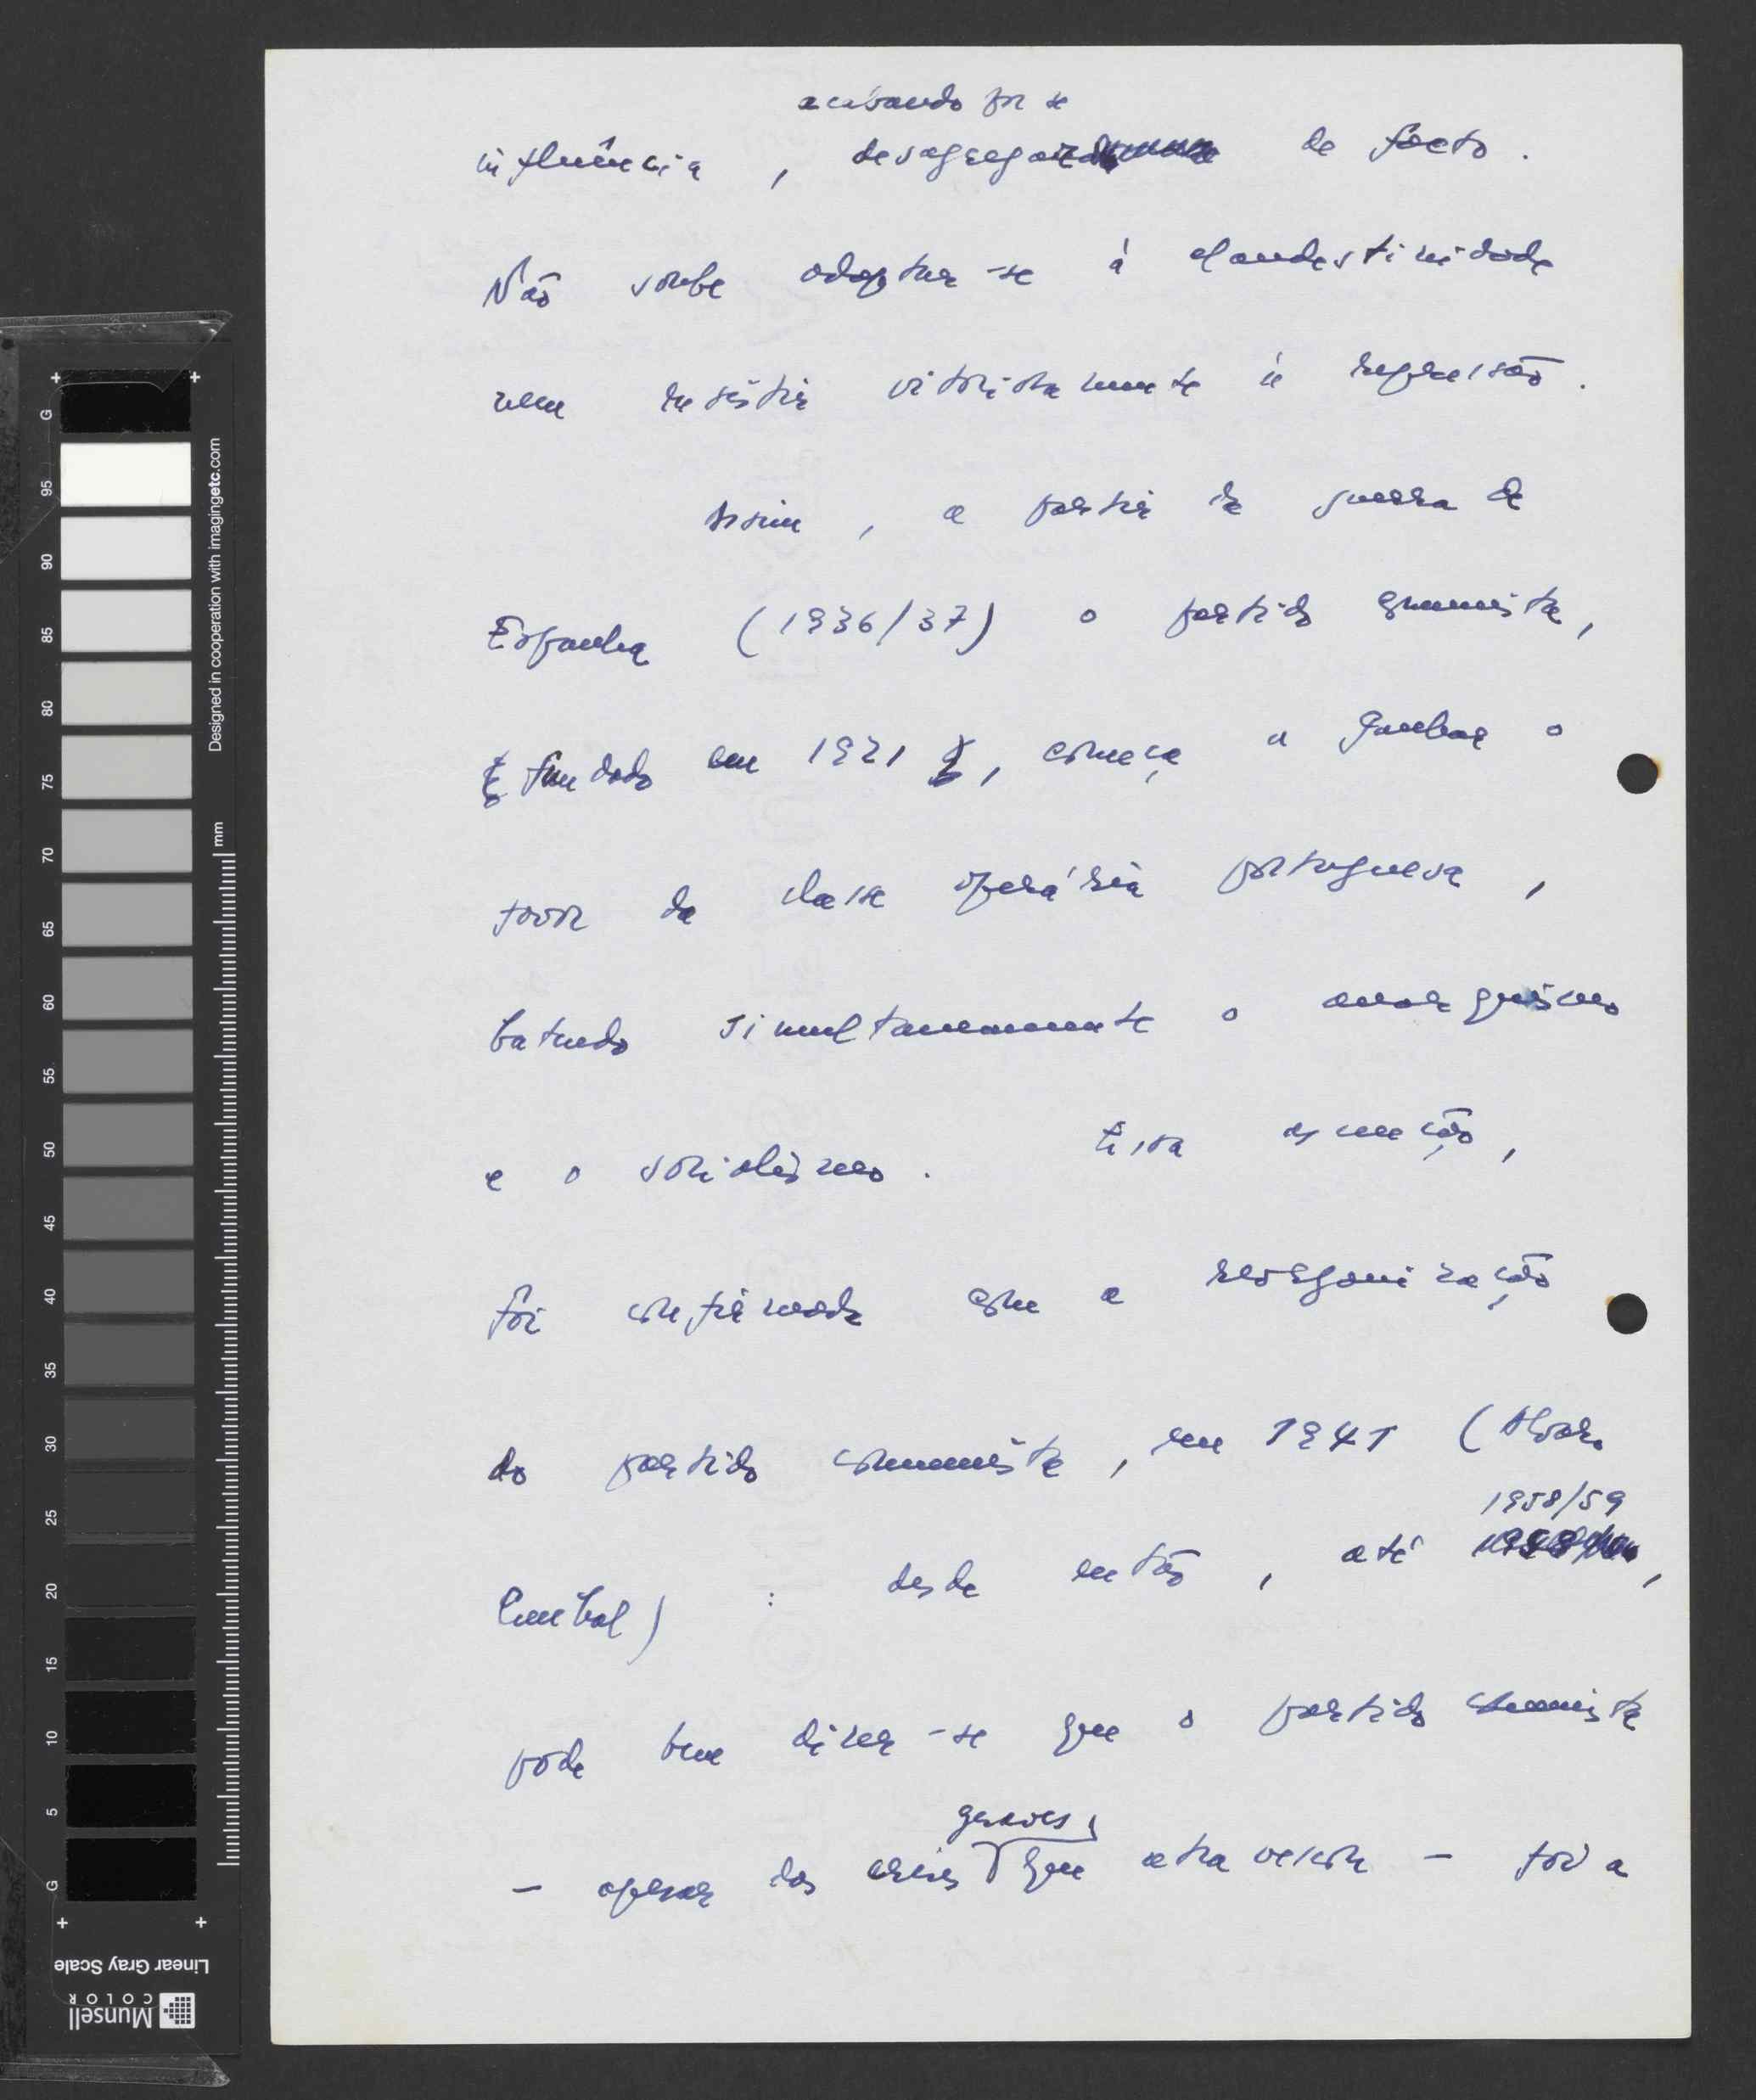 acabando por se
influência, desagregar de facto.
Não soube adaptar-se à clandestinidade
nem resistir vitoriosamente à repressão.
Assim, a partir da guerra de
Espanha (1936/37) o partido comunista,
fundado em 1921, começa a ganhar o
favor da classe operária portuguesa,
batendo simultaneamente o anarquismo
e o socialismo. Essa ascensão,
foi confirmada com a reorganização
do partido comunista, em 1941 (Alvaro
1958/59
Cunhal) : desde então, até ,
pode bem dizer-se que o partido comunista
graves
- apesar das crises que atravessou - foi a
G 95 90 85 80 75 70 65 60 55 50 45 40 35 30 25 20 15 10 5 G
Designed in cooperation with imagingetc.com
mm
Linear Gray Scale
Munsell
COLOR